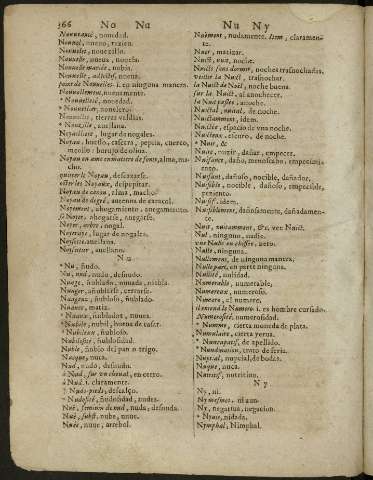 366 No Nu
Nouueauté, nouedad.
Nouuel, nueuo, rezien.
Nouuelet, nouezillo.
Nouuelle, nueua, nouela.
Nouuelle mariée, nobia.
Nouuelle, adiectif, nueua.
point de Nouuelles, i. en ninguna manera.
Nouuellement, nueuamente.
* Nouuelleté, nouedad.
* Nouuellier, nouelero.
Nouuelis, tierras valdias.
* Nouzille, auellana.
Noyaillaie, lugar de nogales.
Noyau, huesso, caxcara, pepita, cuerco,
meollo: barujo de oliua.
Noyau en une emmatiere de fonte, alma, macho.
quiter le Noyau, descaxarse.
oster les Noyaux, despepitar.
Noyau de canon, alma, macho.
Noyau de degré, anterna de caracol.
Noyement, ahogamiento, anegamiento.
se Noyer, ahogarse, anegarse.
Noyer, arbre, nogal.
Noyeraye, lugar de nogales.
Noisette, auellana.
Noisetier, auellano.
Nu
* Nu, ñudo.
Nu, nud, nudo, desnudo.
Nuage, ñublado, nuuada, nublia.
Nuager, añublarse, cerrarse.
Nuageux, ñubloso, ñublado.
Nuance, matiz.
* Nuaux, ñublados, nuues.
* Nubile, nubil, buena de casar.
* Nubileux, ñubloso.
Nubilosité, ñublosidad.
Nuble, ñublo del pan o trigo.
Nucque, nuca.
Nud, nudo, desnudo.
à Nud, sur un cheual, en cerro.
à Nud, i. claramente.
y Nuds-pieds, descalço.
* Nudosité, ñudosidad, nudez.
Nuë, feminin de nud, nuda, desnuda.
Nuë, subst. nube, nuue.
Nuée, nuue, arrebol.
Nu Ny
Nuëment, nudamente. Item, claramente.
Nuer, matizar.
Nuict, nuit, noche.
Nuicts sans dormir, noches trasnochadas.
veiller la Nuict, trasnochar.
la Nuict de Noël, noche buena.
sur la Nuict, al anochecer.
la Nuict passée, anoche.
Nuictal, nuital, de noche.
Nuictamment, idem.
Nuictée, espacio de vna noche.
Nuicteux, escuro, de noche.
* Nuir, &
Nuire, nozir, dañar, empecer.
Nuisance, daño, menoscabo, empecimiento.
Nuisant, dañoso, nocible, dañador.
Nuisible, nocible, dañoso, empecible,
peciento.
Nuisif, idem.
Nuisiblement, dañosamente, dañadamente.
Nuit, nuitamment, &c. ver Nuict.
Nul, ninguno, nadie.
vne Nulle en chiffre, zero.
Nulle, ninguna.
Nullement, de ninguna manera.
Nulle part, en parte ninguna.
Nullité, nulidad.
Numerable, numerable,
Numereux, numeroso.
Numero, el numero.
il entend le Numero, i. es hombre cursado.
Numerosité, numerosidad.
* Nummus, cierta moneda de plata.
* Numulaire, cierta yerua.
* Nuncupatif, de apellido.
* Nundination, trato de feria.
Nuptial, nupcial, de bodas.
Nuque, nuca.
Nutritif, nutritiuo.
Ny
Ny, ni.
Ny mesmes, ni aun.
Ny, negatiua, negacion.
* Nyée, nidada.
Nymphal, Nimphal.